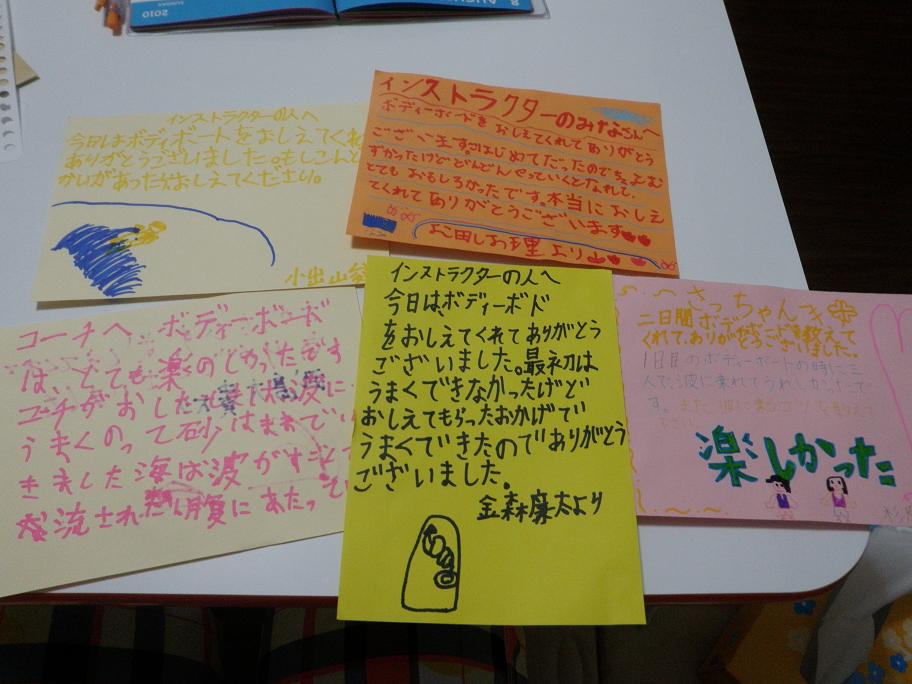 2010
インストラクターの人へ
今日はボディボートをおしえてくれ
ありがとうございました。もしこんど
かいがあったらおしえてください。
小出山
インストラクターのみなさんへ
ボディーボードをおしえてくれてありがとう
ございます。はじめてだったのでちょとむ
ずかったけどどんどんやっていくとなれて、
とてもおもしろかったです。本当におしえ
てくれてありがとうございます
より
コーチへ ボディーボード
は、とても楽のしかったです
コーチがおした
波に
うまくのって砂はまれでい
きました海は波がすごく
流され
腹にあたって
インストラクターの人へ
今日は、ボディーボド
をおしえてくれてありがとう
ございました。最初は
うまくできなかったけど
おしえてもらったおかげで
うまくできたのでありがとう
ございました。
金森廉太より
さっちゃんへ
二日間ボディボードを教えて
くれて、ありがとうございました。
1日目のボディーボートの時に三
人で波に乗れてうれしかったで
す。また波に乗るコツを教えて
下さい。
楽しかった